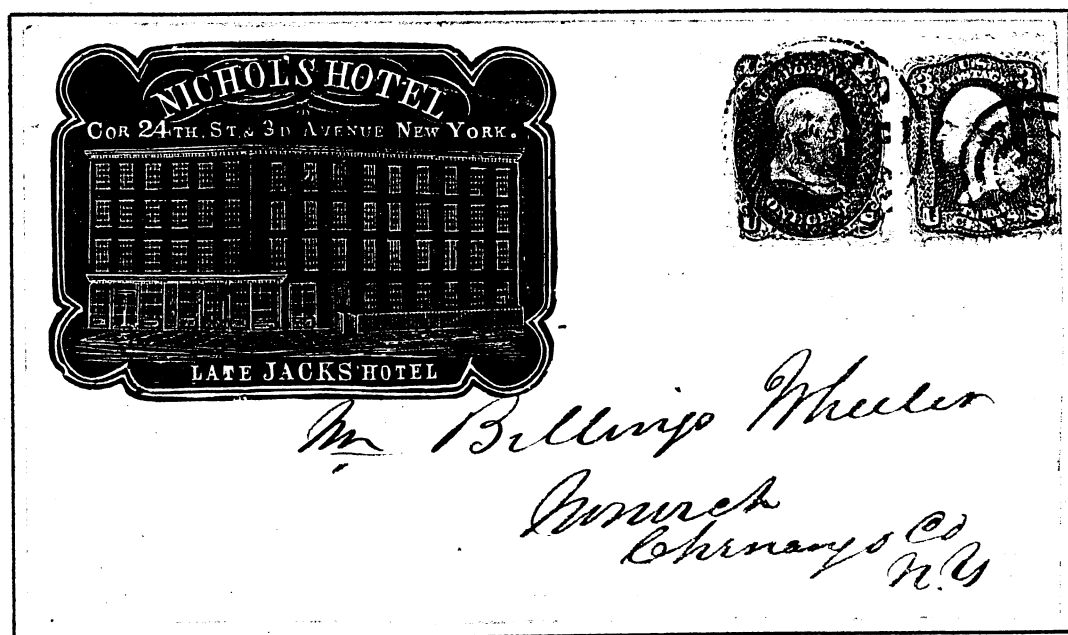 NICHOL'S HOTEL
COR 24TH. ST. & 3D AVENUE NEW YORK.
LATE JACKS' HOTEL
U.S. POSTAGE
1
ONE CENT
U
S
U.S.
POSTAGE
3
3
THREE
U CENTS. S
Mr Billings Wheeler
Norwich
Chenango Co
N.Y